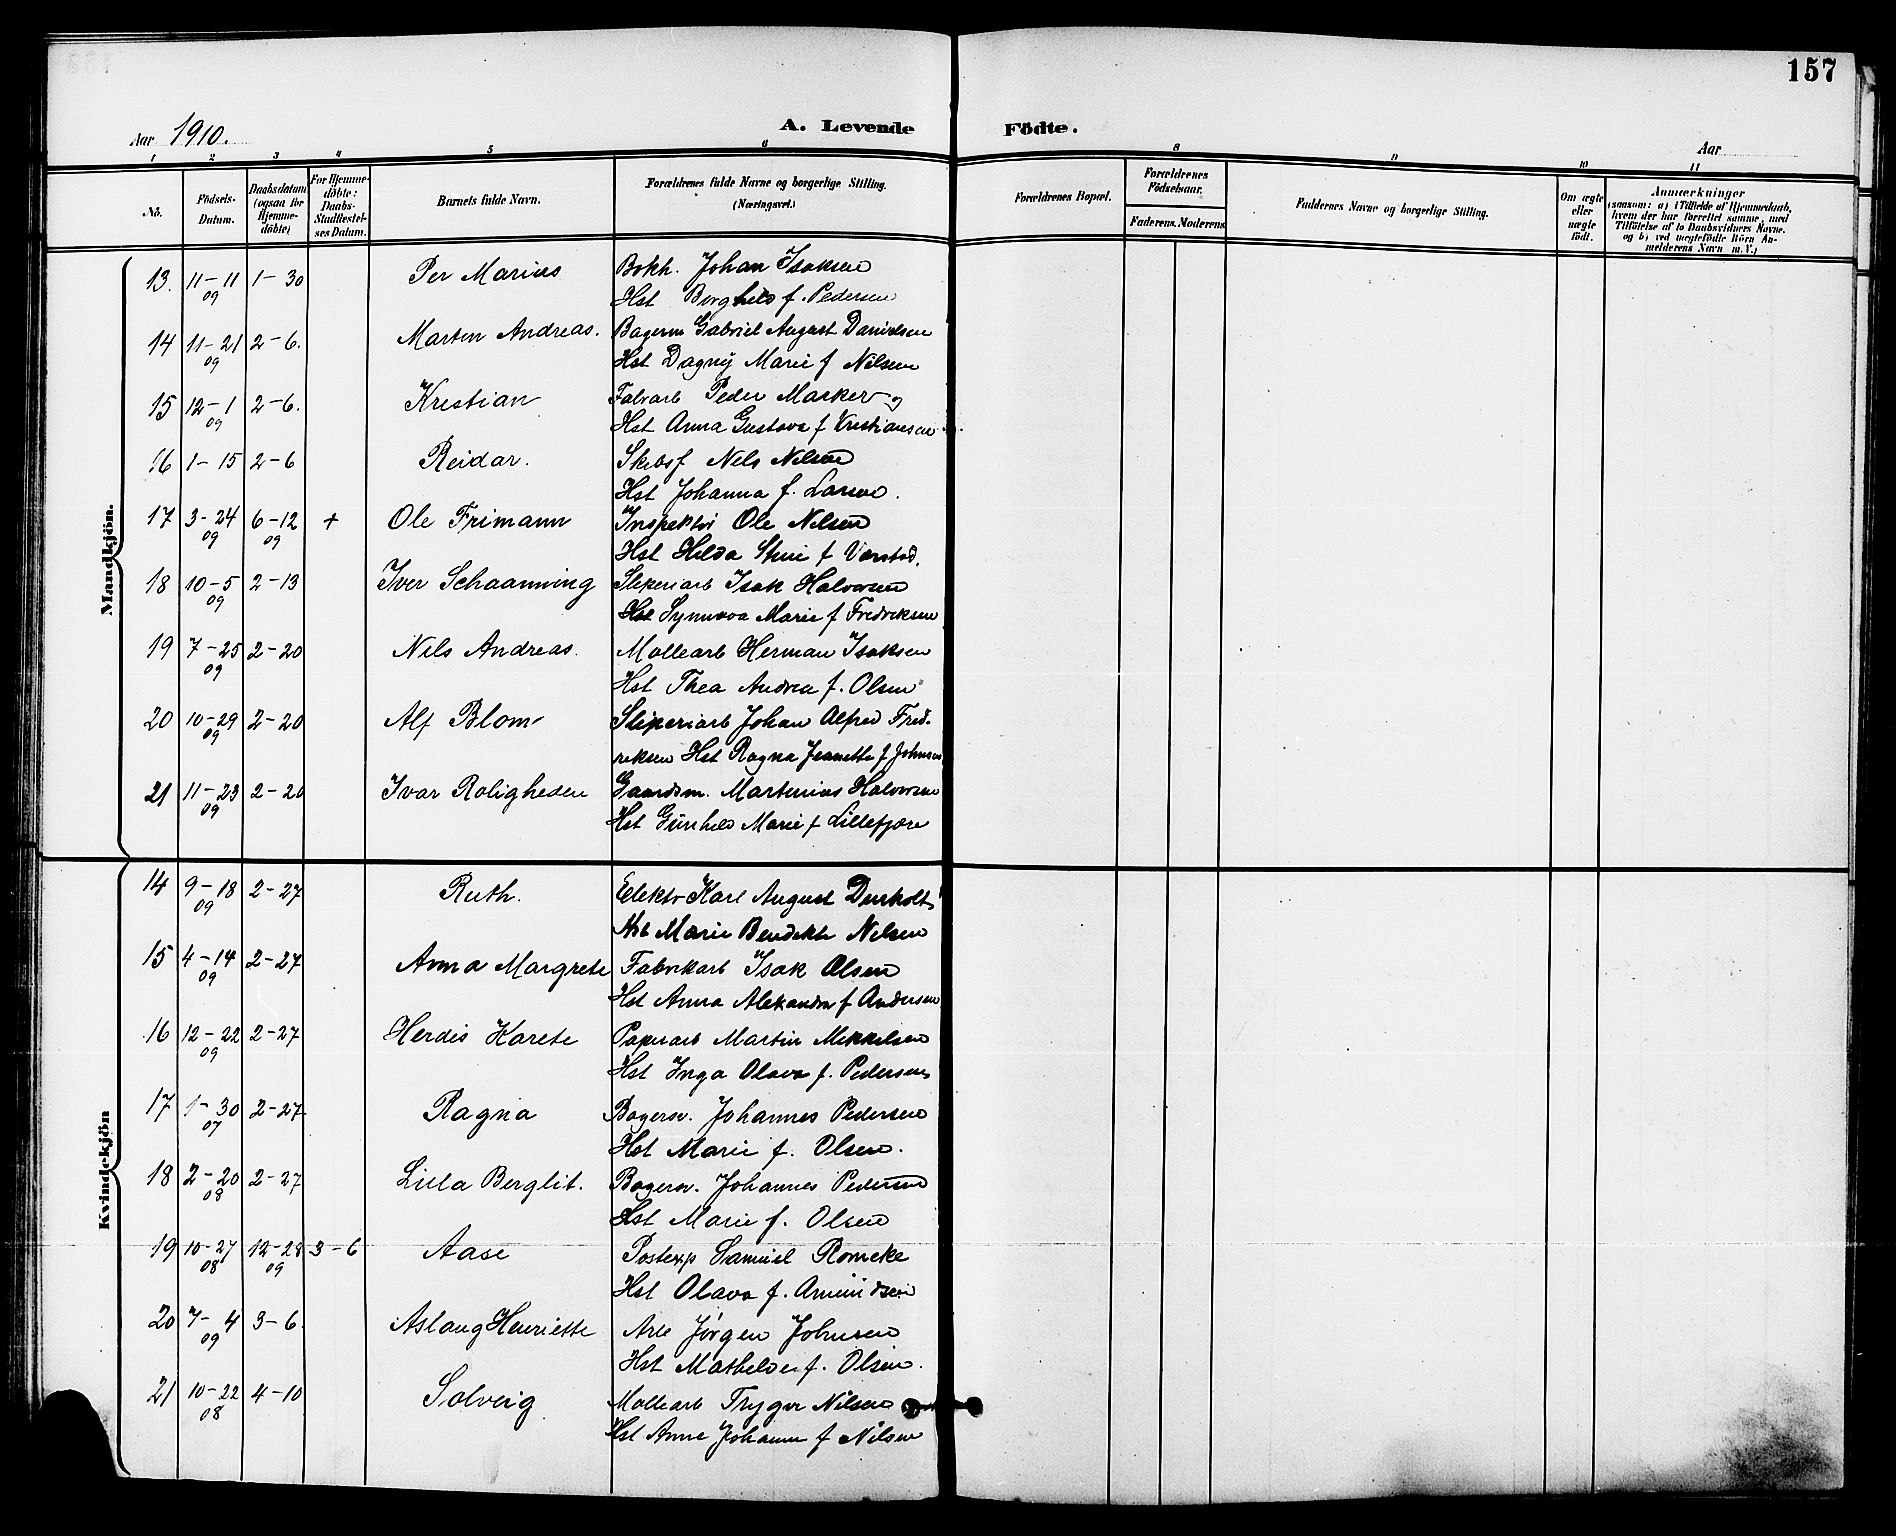 157
Aar 1910.
A. Levende Födte.
Aar
1 2 3 4 5 6 8 9 10 11
No.
Födsels-Datum.
Daabsdatum (ogsaa for Hjemme-döbte)
For Hjemme-döbte: Daabs-Stadfæstel-ses Datum.
Barnets fulde Navn.
Forældrenes fulde Navne og borgerlige Stilling. (Næringsvei.)
Forældrenes Bopæl.
Forældrenes Födselsaar.
Faderens. Moderens.
Faddernes Navne og borgerlige Stilling.
Om ægte eller uægte födt.
Anmærkninger
(saasom: a) i Tilfælde af Hjemmedaab, hvem der har forrettet samme, med Tilföielse af to Daabsvidners Navne. og b) ved uægtefödte Börn An-melderens Navn m. V.)
Mandkjön.
13. 11-11 09 1-30 Per Marius Bokh. Johan Isaksen
Hst Borghild f. Pedersen
14 11-21 09 2-6. Marten Andreas. Bagerm Gabriel August Danielsen
Hst Dagny Marie f Nilsen
15 12-1 09 2-6. Kristian Fabrarb Peder Marker og
Hst Anna Gustava f Kristiansen
16 1-15 2-6 Reidar. Skibsf Nels Nelsen
Hst Johanna f. Larsen.
17 3-24 09 6-12 09 + Ole Frimann Inspektör Ole Nelsen
Hst Hilda f
18 10-5 09 2-13 Iver Schaanning Sliperiarb Isak Halvorsen
Hst Synnøva Marie f Fredriksen
19 7-25 09 2-20 Nils Andreas. Mollearb Herman Isaksen
Hst Thea Andrea f. Olsen
20 10-29 09 2-20 Alf Blom Sliperiarb Johan Alfred Fred-
riksen Hst Ragna Jeanette f Johnsen
21 11-23 09 2-20 Ivar Roligheden Gaardsm. Martinius Halvorsen
Hst Gunhild Marie f Lillefjære
Kvindekjön
14 9-18 09 2-27 Ruth. Elektr Karl August
Hst Marie Bendikte Nelsen
15 4-14 09 2-27 Anna Margrete Fabrikarb Isak Olsen
Hst Anna Alexandra f Andersen
16 12-22 09 2-27 Herdis Karete Papirarb Martin Mikkelsen
Hst Inga Olava f. Pedersen
17 1-30 07 2-27 Ragna Bagersv. Johannes Pedersen
Hst Marie f. Olsen.
18 2-20 08 2-27 Lilla Berglit. Bagersv. Johannes Pedersen
Hst Marie f. Olsen
19 10-27 08 12-28 09 3-6 Aase Postexp Samuel Romcke
Hst Olava f. Amundsen
20 7-4 09 3-6. Aslaug Henriette Arb Jørgen Johnsen
Hst Mathilde f. Olsen.
21 10-22 08 4-10 Solveig Mollearb Trygve Nilsen
Hst Anne Johanne f Nilsen